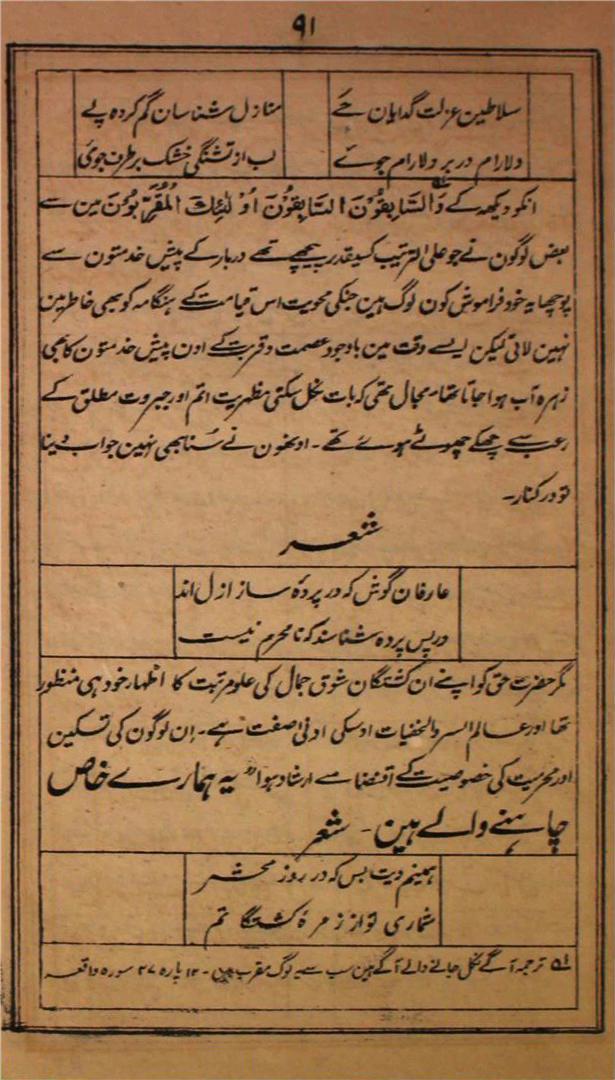 ۹۱
سلاطین عزلت گدایان حے
منازل شناسان گم کردہ پے
دلارام در بر دلارام جوے
لب از تشنگی خشک بر طرف جوی
انکو دیکھہ کے وَالسَّابِقُوْنَ السَّابِقُوْنَ اُوْلٰئِكَ الْمُقَرَّبُوْنَ مین سے
بعض لوگون نے جو علی الترتیب کسیقدر پیچھے تھے دربار کے پیش خدمتون سے
پوچھا یہ خود فراموش کون لوگ ہین جنکی محویت اس قیامت کے ہنگامہ کو بھی خاطر مین
نہین لاتی لیکن ایسے وقت مین باوجود عصمت و قربت کے اون پیش خدمتون کا بھی
زہرہ آب ہوا جاتا تھا۔ مجال تھی کہ بات نکل سکتی مظہریت اتم اور جبروت مطلق کے
رعب سے چھکے چھوٹے ہوے تھے۔ اونھون نے سنا بھی نہین جواب دینا
تو درکنار۔
شعر
عارفان گوش کہ در پردہ ساز ازل اند
در پس پردہ شناسند کہ نامحرم نیست
مگر حضرت حق کو اپنے ان کشتگان شوق جمال کی علو مرتبت کا اظہار خود ہی منظور
تھا اور عالم السر والخفیات اوسکی ادنی صفت ہے۔ اِن لوگون کی تسکین
اور محرمیت کی خصوصیت کے اقتضا سے ارشاد ہوا "یہ ہمارے خاص
چاہنے والے ہین۔ شعر
ہمینم دیت بس کہ در روز محشر
شماری تو از زمرۂ کشتگانم
ترجمہ آگے نکل جانے والے آگے ہین سب سے یہ لوگ مقرب ہین۔ ۱۲ پارہ ۲۷ سورہ واقعہ